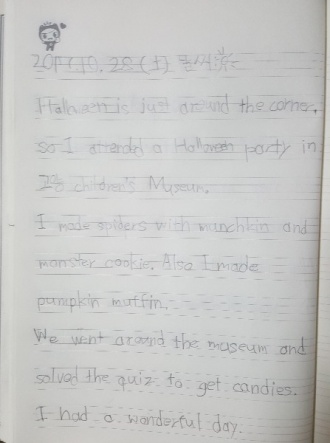 2017. 10. 28 (土)
Halloween is just around the corner,
so I attended a Halloween party in
children's Museum.
I made spiders with munchkin and
monster cookie. Also I made
pumpkin muffin.
We went around the museum and
solved the quiz to get candies.
I had a wonderful day.